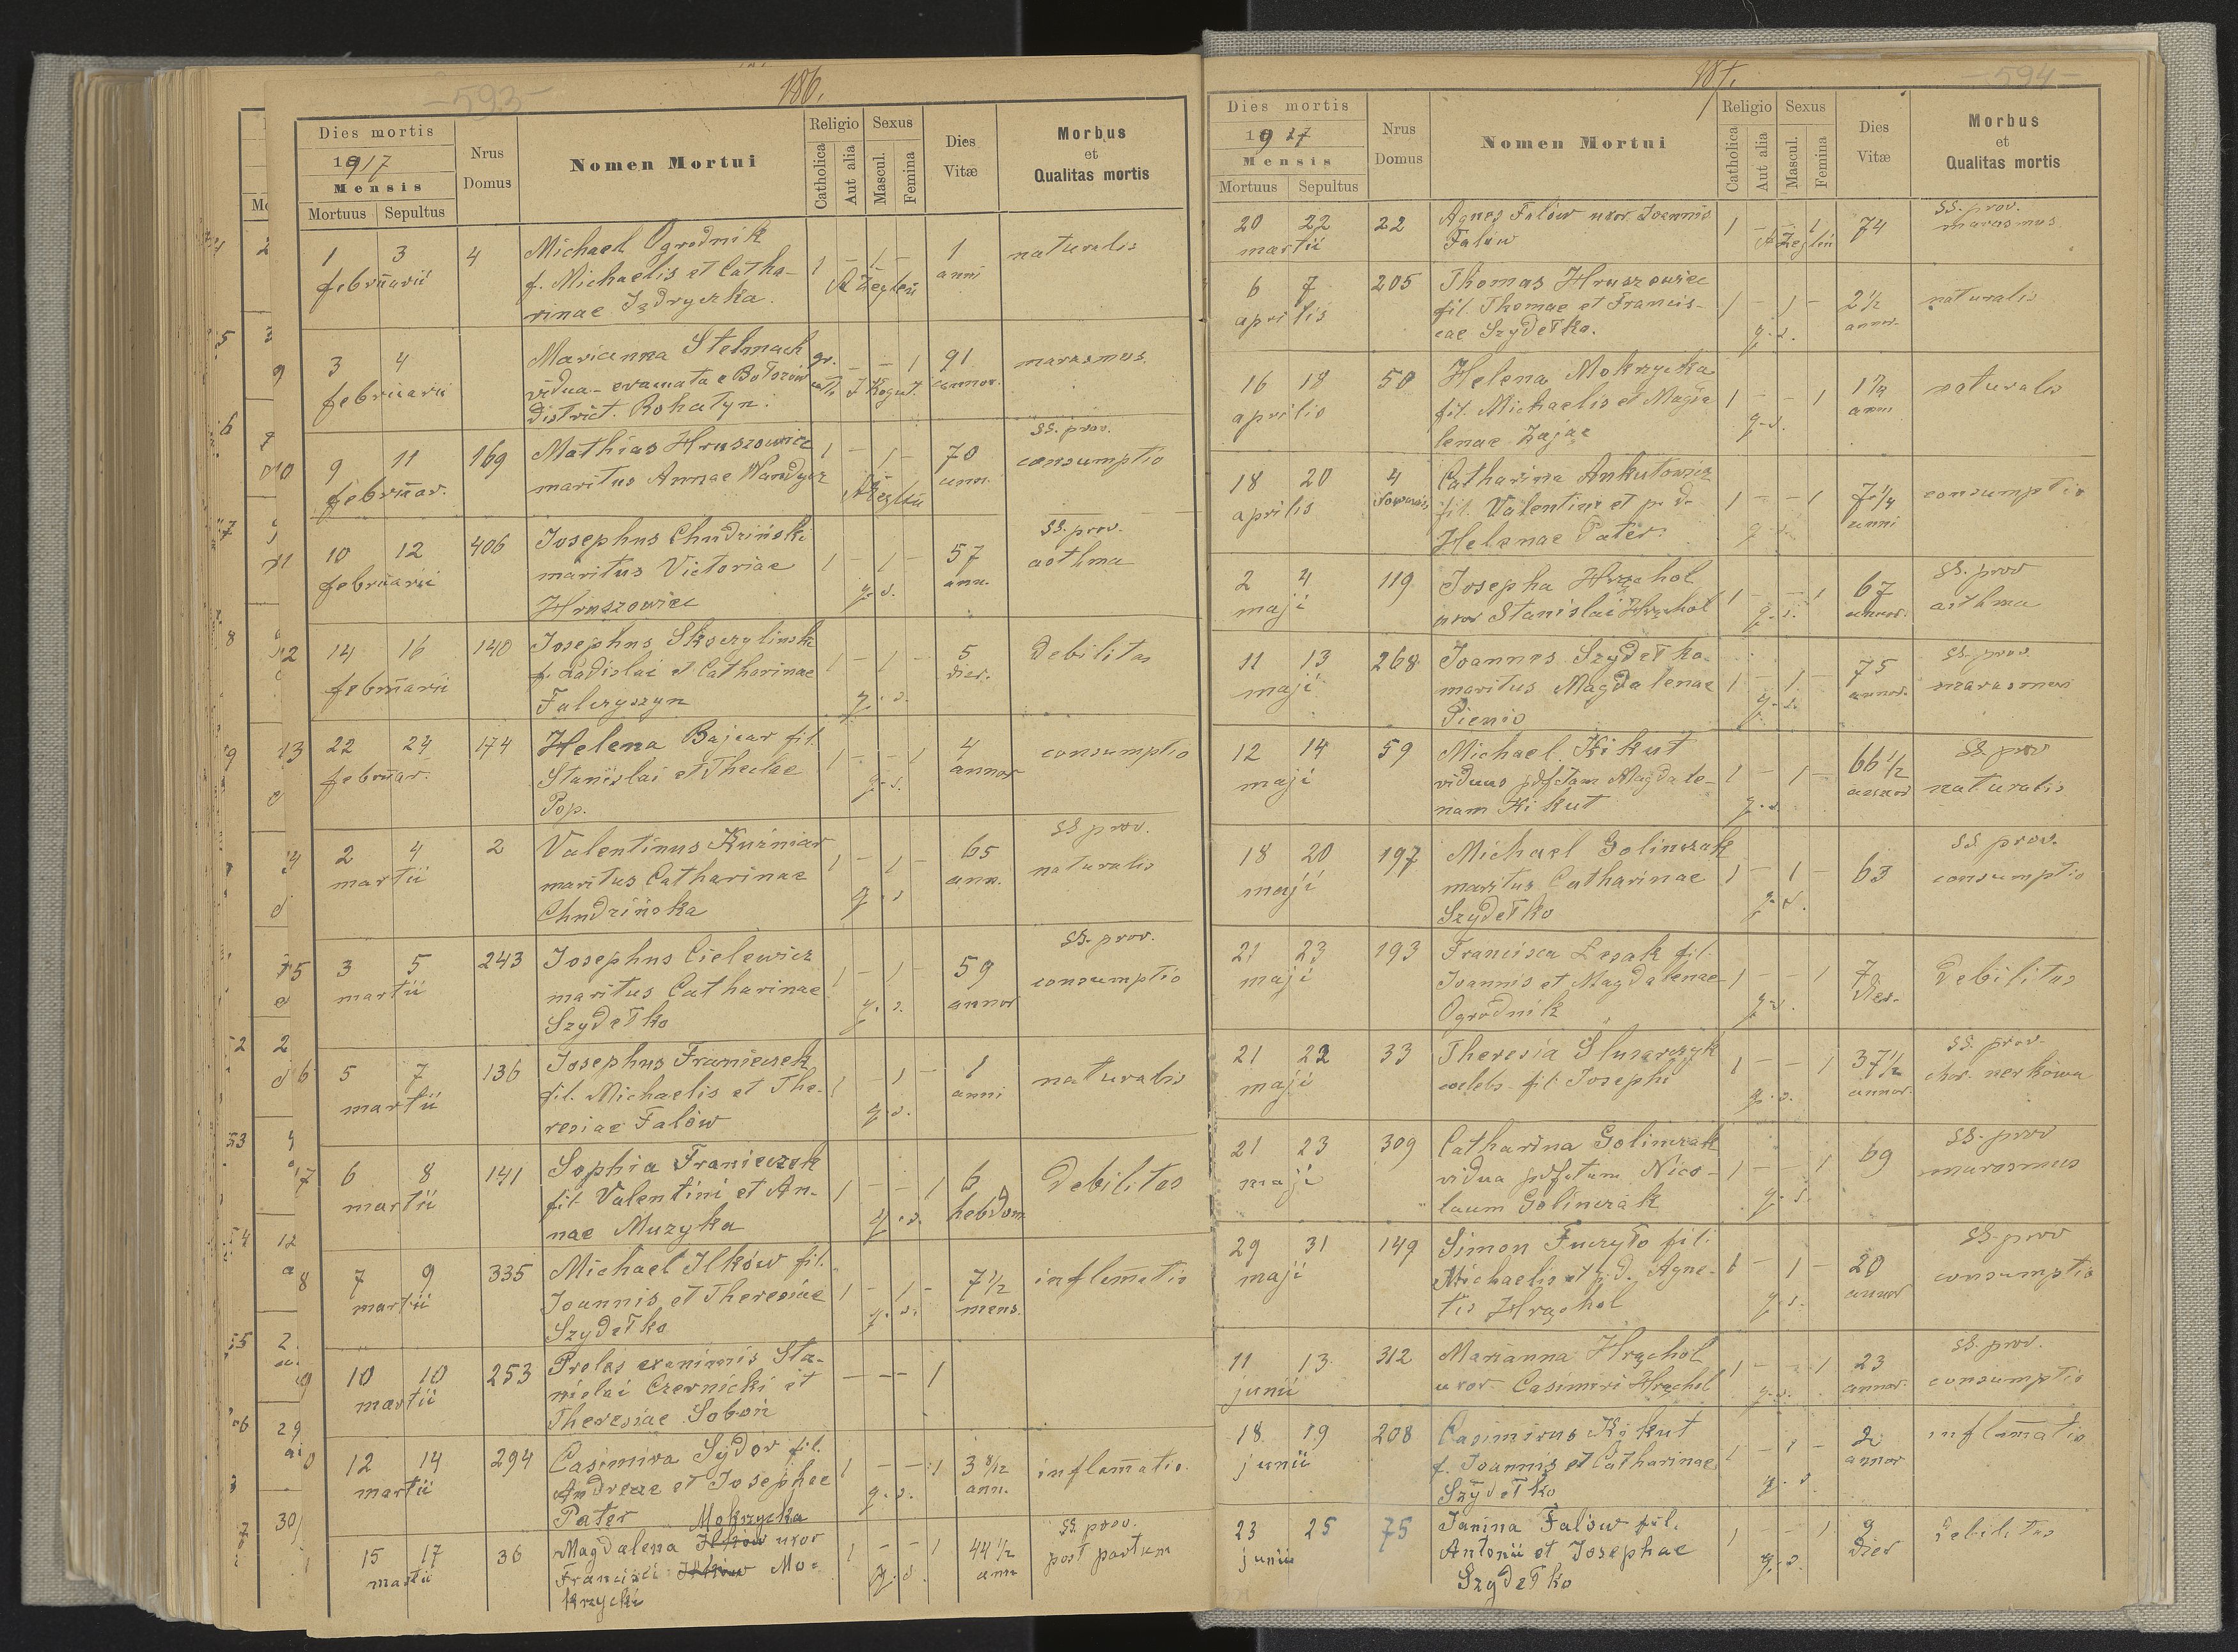 -593-
186.
Dies mortis
1917
Mensis
Mortuus Sepultus
Nrus
Domus
Nomen Mortui
Religio
Catholica
Aut alia
Sexus
Mascul.
Femina
Dies
Vitæ
Morbus
et
Qualitas mortis
1 3 4 Michael Ogrodnik 1 - 1 - 1 naturalis
februarii f. Michaelis et Catha- A Żegleń anni
rinae Jędryczka.
3 4 Marianna Stelmach gr. - - 1 91 marasmus
februarii vidua - evacuata e Bołszów cath. J Kogut. annor.
District. Rohatyn.
ss. prov.
9 11 169 Mathias Hruszowiec 1 - 1 - 70 consumptio
februar. maritus Annae Wandycz A Żegleń ann.
ss. prov.
10 12 406 Josephus Chudziński 1 - 1 - 57 asthma
februarii maritus Victoriae q. s. ann.
Hruszowiec
14 16 140 Josephus Skoczylinski 1 - 1 - 5 debilitas
februarii f. Ladislai et Catharinae q. s. dier.
Falczyszyn
22 24 174 Helena Bajcar fil. 1 - - 1 4 consumptio
februar. Stanislai et Theclae q. s. annor
Pop.
ss prov.
2 4 2 Valentinus Kuźniar 1 - 1 - 65 naturalis
martii maritus Catharinae q. s ann.
Chudzińska
ss. prov.
3 5 243 Josephus Cielewicz 1 - 1 - 59 consumptio
martii maritus Catharinae q. s. annor
Szydełko
5 7 136 Josephus Franieczek 1 - 1 - 1 naturalis
martii fil. Michaelis et The- q. s. anni
resiae Falów
6 8 141 Sophia Franieczek 1 - - 1 6 debilitas
martii fil. Valentini et An- q. s. hebdom
nae Muzyka
7 9 335 Michael Ilków fil. 1 - 1 - 7 1/2 inflam̄atio
martii Joannis et Theresiae q. s. mens.
Szydełko
10 10 253 Proles exanimis Sta- - - - 1
martii nislai Czernicki et
Theresiae Soboń
12 14 294 Casimira Sydor fil. 1 - - 1 3 1/2 inflam̄atio.
martii Andreae et Josephae q. s. ann.
Pater
Mokrzycka ss. prov.
15 17 36 Magdalena Ilków uxor 1 - - 1 44 1/2 post partum
martii Francisci Ilków Mo= q. s. ann
krzycki
-594-
187.
Dies mortis
1917
Mensis
Mortuus Sepultus
Nrus
Domus
Nomen Mortui
Religio
Catholica
Aut alia
Sexus
Mascul.
Femina
Dies
Vitæ
Morbus
et
Qualitas mortis
ss. prov.
20 22 22 Agnes Falów uxor Joannis 1 - - 1 74 marasmus
martii Falów A Żegleń
6 7 205 Thomas Hruszowiec 1 - 1 - 2 1/2 naturalis
aprilis fil. Thomae et Francis- q. s. annor.
cae Szydełko.
16 18 50 Helena Mokrzycka 1 - - 1 naturalis
aprilis fil. Michaelis et Magda q. s. anni
lenae Zając
18 20 4 Catharina Ankutowicz 1 - - 1 7 1/4 consumptio
aprilis fil. Valentini et p. d. q. s. anni
Helenae Pater.
ss. prov
2 4 119 Josepha Hrąchol 1 - - 1 67 asthma
maji uxor Stanislai Hrąchol q. s. annor.
ss. prov.
11 13 268 Joannes Szydełko 1 - 1 - 75 marasmus
maji maritus Magdalenae q. s. annor.
Pienio
ss. prov
12 14 59 Michael Kikut 1 - 1 - 66 1/2 naturalis
maji viduus pdfctam Magdale- q. s. annor
nam Kikut
ss. prov.
18 20 197 Michael Golinczak 1 - 1 - 63 consumptio
maji maritus Catharinae q. s.
Szydełko
21 23 193 Francisca Lesak fil. 1 - - 1 7 debilitas
maji Joannis et Magdalenae q. s. dier.
Ogrodnik
ss. prov.
21 22 33 Theresia Slusarczyk 1 - - 1 37 1/2 chor. nerkowa
maji caelebs fil. Josephi q. s. annor.
ss. prov
21 23 309 Catharina Golinczak 1 - - 1 69 marasmus
maji vidua pdfctum Nico- q. s.
laum Golinczak
ss. prov
29 31 149 Simon Fuczyło fil. 1 - 1 - 20 consumptio
maji Michaelis et p.d. Agne- q. s. annor
tis Hrąchol
ss. prov.
11 13 312 Marianna Hrąchol 1 - - 1 23 consumptio
junii uxor Casimiri Hrąchol q. s. annor.
18 19 208 Casimirus Kikut 1 - 1 - 2 inflam̄atio
junii f. Joannis et Catharinae q. s. annor
Szydełko
23 25 75 Janina Falów fil. 1 - - 1 9 debilitas
junii Antonii et Josephae q. s. dier
Szydełko